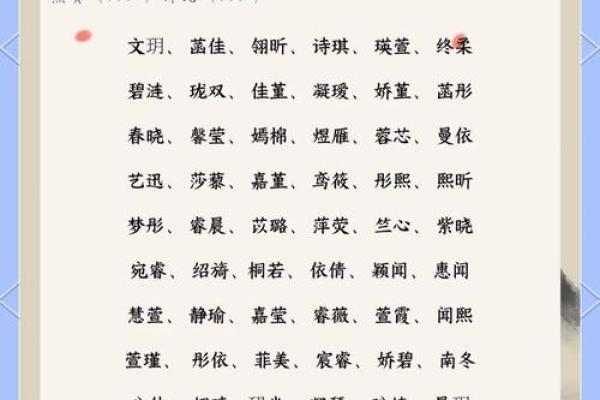 文玥、菡佳、翎昕、诗琪、瑛萱、终柔
碧涟、珑双、佳堇、凝瑷、娇堇、菡彤
春晓、馨莹、嫣棉、煜雁、蓉芯、曼依
艺迅、莎藜、嘉堇、鸢筱、彤熙、熙昕
梦彤、睿晨、苡璐、萍荧、竺心、紫晓
宛睿、绍旖、桐若、依倩、颖闻、惠闻
慧萱、静瑜、嘉莹、睿薇、萱霞、闻熙
萱瑾、彤依、菲美、宸睿、娇碧、南冬